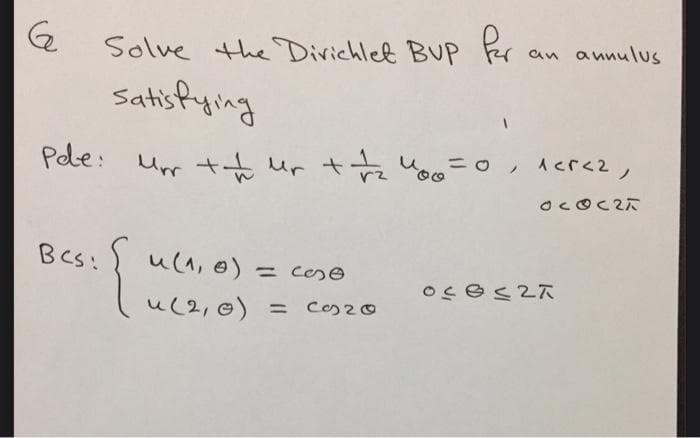 Q Solve the Dirichlet BVP for an annulus
satisfying
Pde: u_rr + 1/r u_r + 1/r² u_θθ = 0 , 1<r<2 ,
0<θ<2π
BCs: { u(1, θ) = cosθ
0 ≤ θ ≤ 2π
u(2, θ) = cos2θ